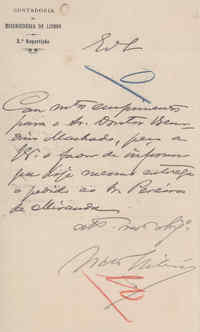 CONTADORIA
DA
MISERICORDIA DE LISBOA
2.ª Repartição
Com mtos cumprimentos
para o Sr. Doutor Bernar-
dino Machado, peço a
V. o favor de informar
que hoje mesmo entrego
o pedido ao Sr Pereira
de Miranda